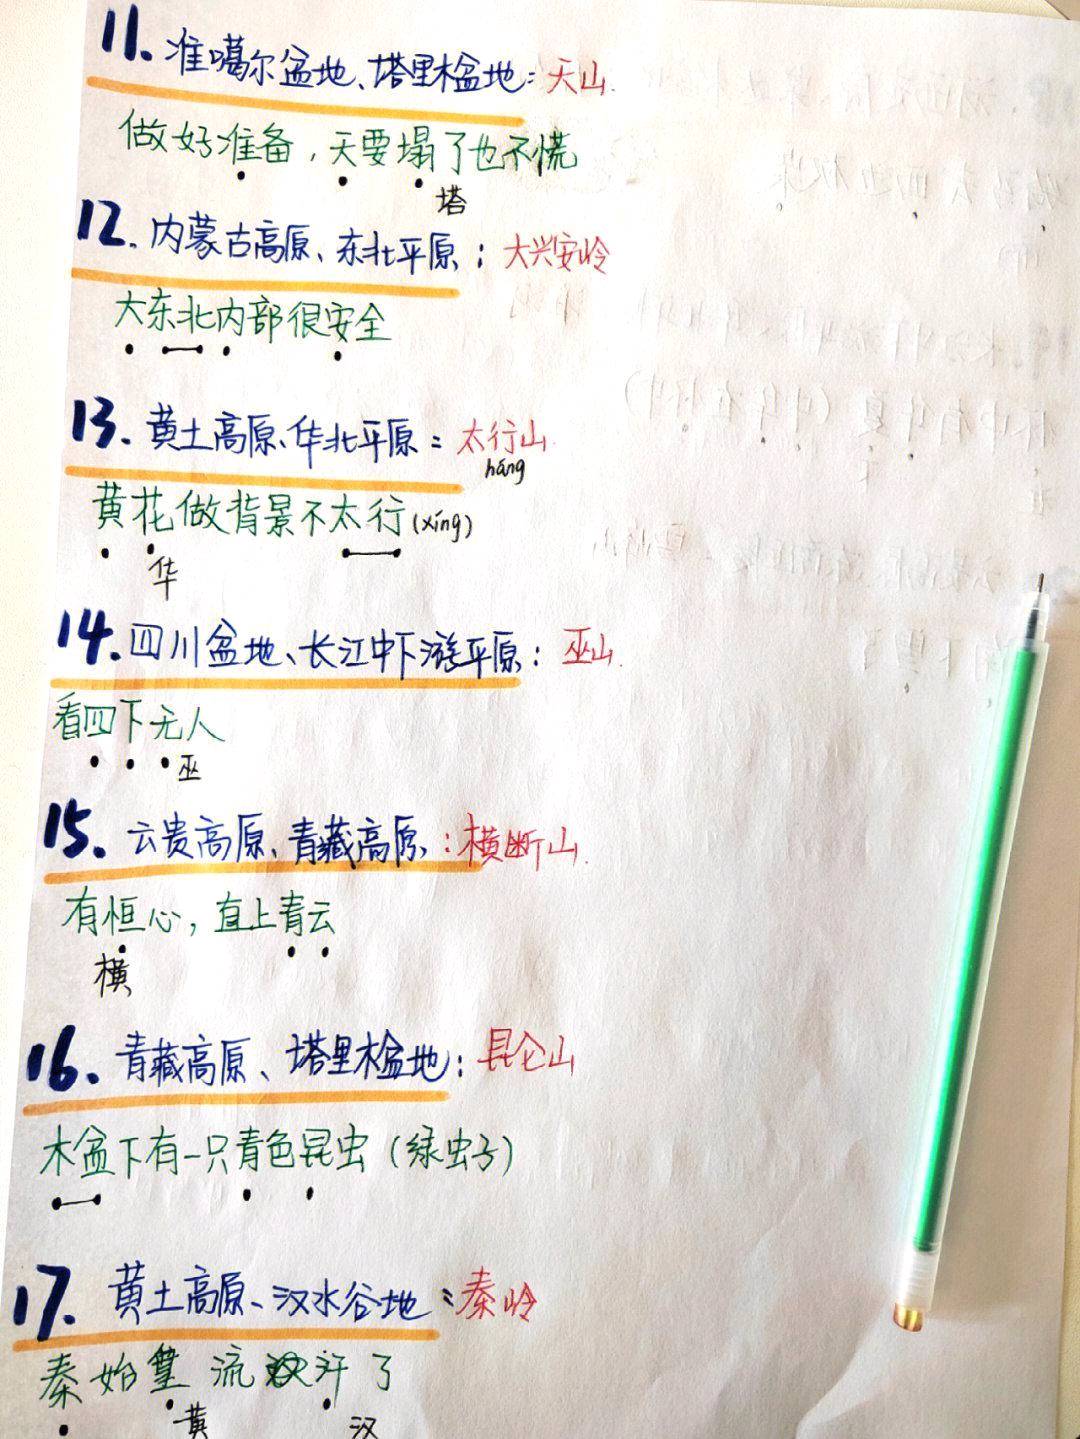 11. 准噶尔盆地、塔里木盆地：天山.
做好准备，天要塌了也不慌
塔
12. 内蒙古高原、东北平原：大兴安岭
大东北内部很安全
13. 黄土高原、华北平原：太行山
háng
黄花做背景不太行(xíng)
华
14. 四川盆地、长江中下游平原：巫山.
看四下无人
巫
15. 云贵高原、青藏高原：横断山.
有恒心，直上青云
横
16. 青藏高原、塔里木盆地：昆仑山
木盆下有一只青色昆虫（绿虫子）
17. 黄土高原、汉水谷地：秦岭
秦始皇 流汗了
黄 汉